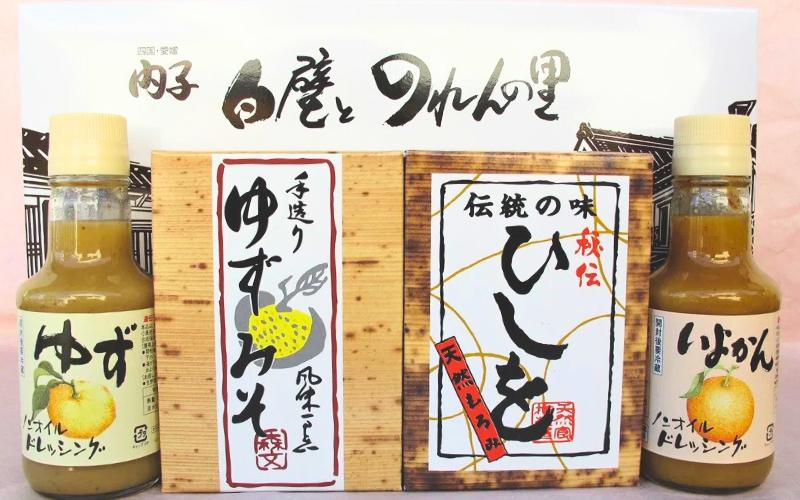 四国・愛媛
内子
白壁と のれんの里
ゆず
ノンオイル
ドレッシング
手造り
ゆずみそ
風味一点
森文
伝統の味
秘伝
ひしを
天然もろみ
開封後要冷蔵
いよかん
ノンオイル
ドレッシング